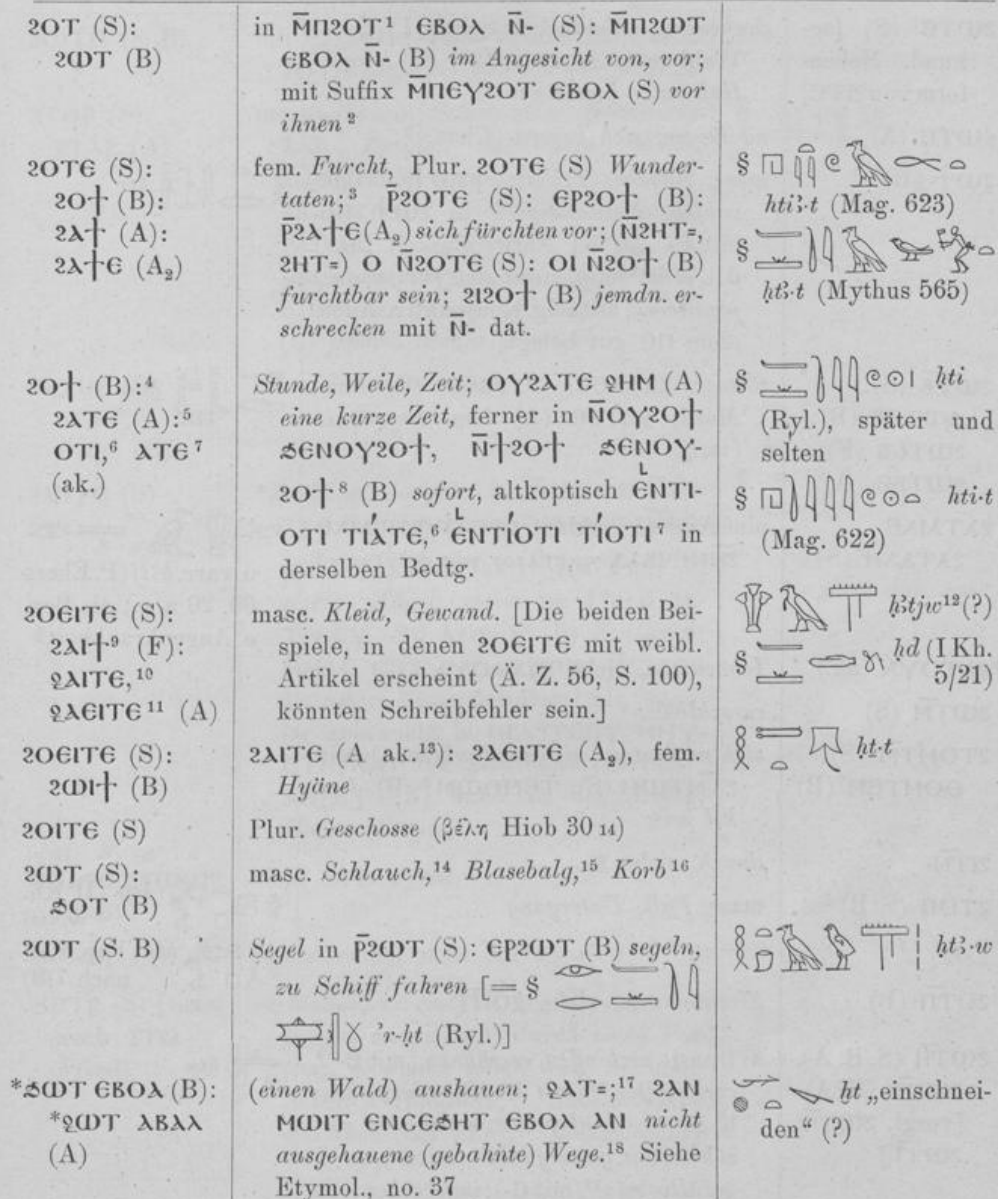 ϩⲟⲧ (S):
ϩⲱⲧ (B)
in ⲙ̄ⲡϩⲟⲧ¹ ⲉⲃⲟⲗ ⲛ̄- (S): ⲙ̄ⲡϩⲱⲧ
ⲉⲃⲟⲗ ⲛ̄- (B) im Angesicht von, vor;
mit Suffix ⲙ̄ⲡⲉⲩϩⲟⲧ ⲉⲃⲟⲗ (S) vor
ihnen²
ϩⲟⲧⲉ (S):
ϩⲟϯ (B):
ϩⲁϯ (A):
ϩⲁϯⲉ (A₂)
fem. Furcht, Plur. ϩⲟⲧⲉ (S) Wunder-
taten;³ ⲣ̄ϩⲟⲧⲉ (S): ⲉⲣϩⲟϯ (B):
ⲣ̄ϩⲁϯⲉ (A₂) sich fürchten vor; (ⲛ̄ϩⲏⲧ=,
ϩⲏⲧ=) ⲟ ⲛ̄ϩⲟⲧⲉ (S): ⲟⲓ ⲛ̄ϩⲟϯ (B)
furchtbar sein; ϩⲓϩⲟϯ (B) jemdn. er-
schrecken mit ⲛ̄- dat.
§
htiꜣ·t (Mag. 623)
§
ḥtꜣ·t (Mythus 565)
ϩⲟϯ (B):⁴
ϩⲁⲧⲉ (A):⁵
ⲟⲧⲓ,⁶ ⲁⲧⲉ⁷
(ak.)
Stunde, Weile, Zeit; ⲟⲩϩⲁⲧⲉ ⳉⲏⲙ (A)
eine kurze Zeit, ferner in ⲛ̄ⲟⲩϩⲟϯ
ϧⲉⲛⲟⲩϩⲟϯ, ⲛ̄ϯϩⲟϯ ϧⲉⲛⲟⲩ-
ϩⲟϯ⁸ (B) sofort, altkoptisch ⲉⲛⲧⲓ-
ⲟⲧⲓ ⲧⲓⲁ́ⲧⲉ,⁶ ⲉⲛⲧⲓ́ⲟⲧⲓ ⲧⲓ́ⲟⲧⲓ⁷ in
derselben Bedtg.
§ ḥti
(Ryl.), später und
selten
§ hti·t
(Mag. 622)
ϩⲟⲉⲓⲧⲉ (S):
ϩⲁⲓϯ⁹ (F):
ⳉⲁⲓⲧⲉ,¹⁰
ⳉⲁⲉⲓⲧⲉ¹¹ (A)
masc. Kleid, Gewand. [Die beiden Bei-
spiele, in denen ϩⲟⲉⲓⲧⲉ mit weibl.
Artikel erscheint (Ä. Z. 56, S. 100),
könnten Schreibfehler sein.]
ḫꜣtjw¹²(?)
§ ḫd (I Kh.
5/21)
ϩⲟⲉⲓⲧⲉ (S):
ϩⲱⲓϯ (B)
ϩⲁⲓⲧⲉ (A ak.¹³): ϩⲁⲉⲓⲧⲉ (A₂), fem.
Hyäne
ḥṯ·t
ϩⲟⲓⲧⲉ (S)
Plur. Geschosse (βέλη Hiob 30 14)
ϩⲱⲧ (S):
ϧⲟⲧ (B)
masc. Schlauch,¹⁴ Blasebalg,¹⁵ Korb¹⁶
ϩⲱⲧ (S. B)
Segel in ⲣ̄ϩⲱⲧ (S): ⲉⲣϩⲱⲧ (B) segeln,
zu Schiff fahren [= §
'r-ḥt (Ryl.)]
ḥtꜣ·w
*ϧⲱⲧ ⲉⲃⲟⲗ (B):
*ⳉⲱⲧ ⲁⲃⲁⲗ
(A)
(einen Wald) aushauen; ⳉⲁⲧ=;¹⁷ ϩⲁⲛ
ⲙⲱⲓⲧ ⲉⲛⲥⲉϧⲏⲧ ⲉⲃⲟⲗ ⲁⲛ nicht
ausgehauene (gebahnte) Wege.¹⁸ Siehe
Etymol., no. 37
ḫt „einschnei-
den“ (?)